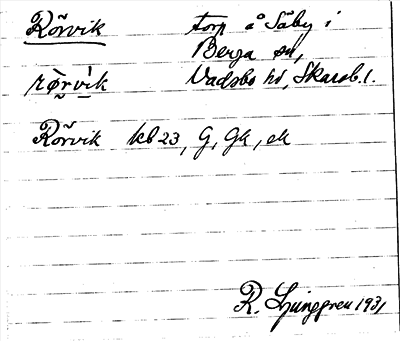 Rörvik torp å Säby i
Berga sn,
rø̀rvìk Vadsbo hd, Skarab. l.
Rörvik kb 23, G, Gk, ek
R. Ljunggren 1931